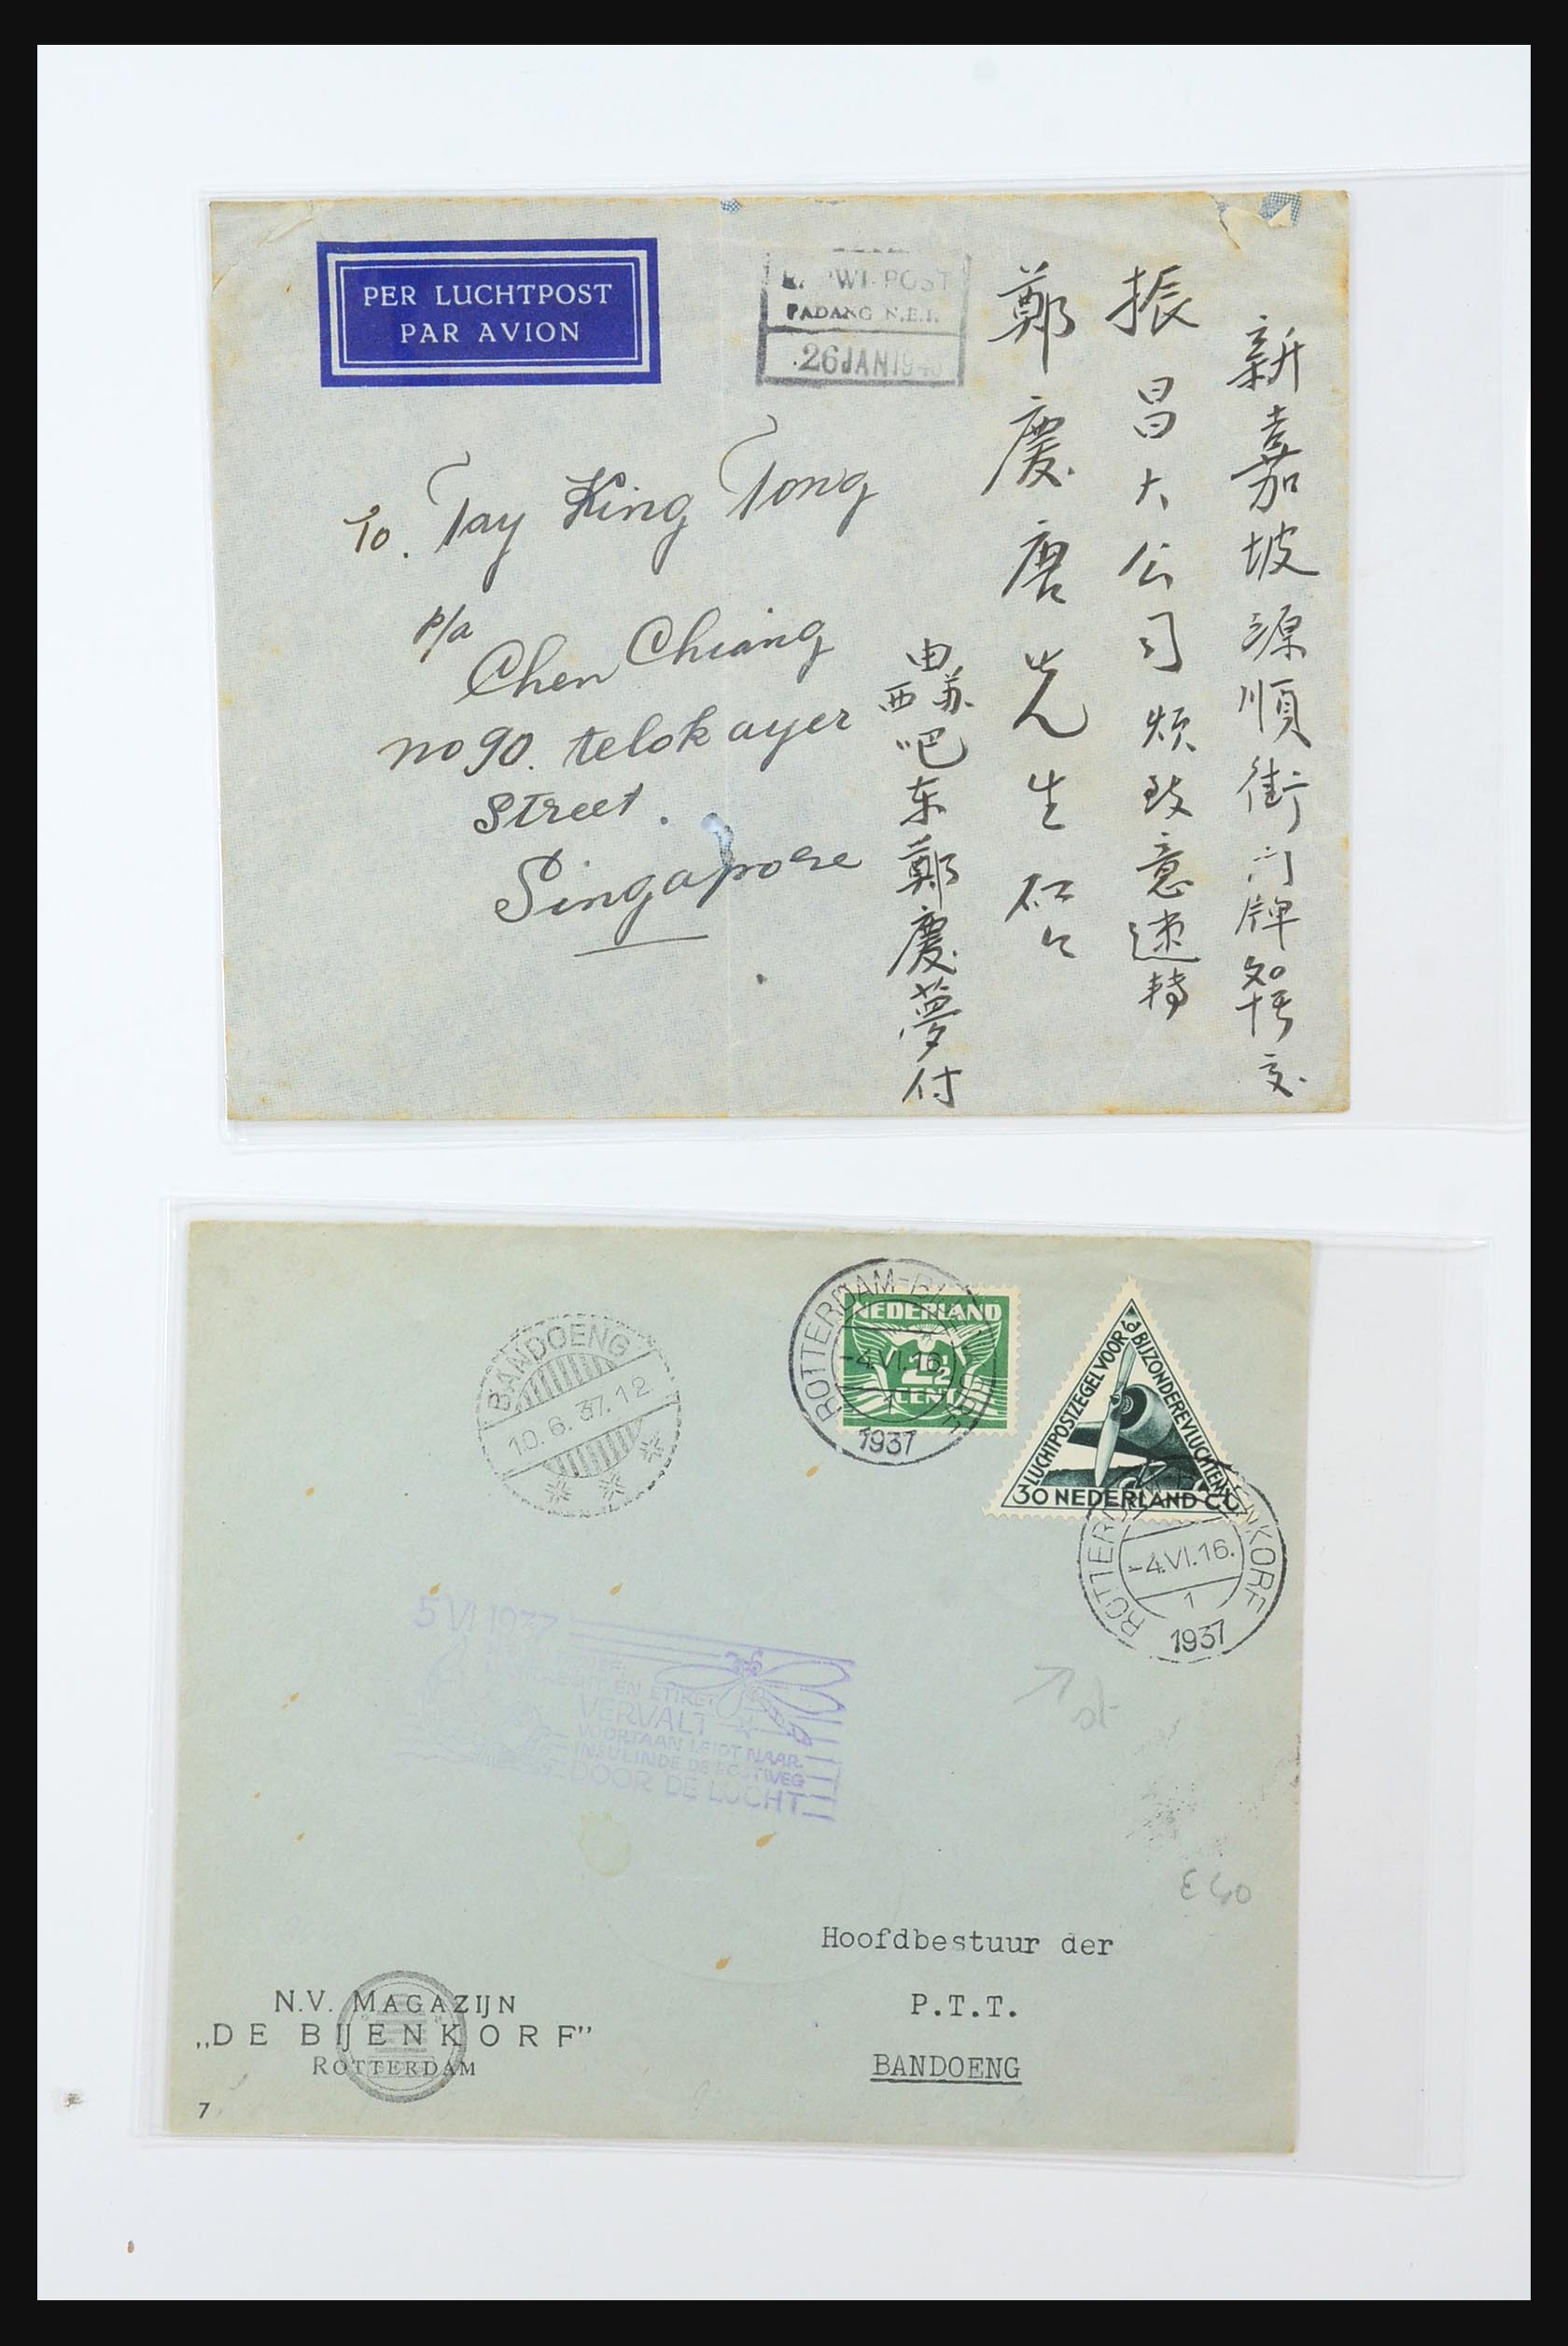 PER LUCHTPOST
PAR AVION
PADANG N.E.I.
26 JAN 194
To. Tay King Tong
p/a
Chen Chiang
no 90. telok ayer
street.
Singapore
新嘉坡源順街门牌交
振昌大公司烦致意速轉
鄭慶唐先生
由苏西吧东鄭慶夢付
BANDOENG
10.6.37.12
NEDERLAND
2½
CENT
ROTTERDAM-BIJENKORF
-4.VI.16.
1
1937
LUCHTPOSTZEGEL VOOR
BIJZONDERE VLUCHTEN
30 NEDERLAND CT
ROTTERDAM-BIJENKORF
-4.VI.16.
1
1937
5 VI 1937
EN ETIKET
VERVALT
VOORTAAN LEIDT NAAR
INSULINDE DE POSTWEG
DOOR DE LUCHT
€40
Hoofdbestuur der
P.T.T.
BANDOENG
N.V. MAGAZIJN
„DE BIJENKORF”
ROTTERDAM
7